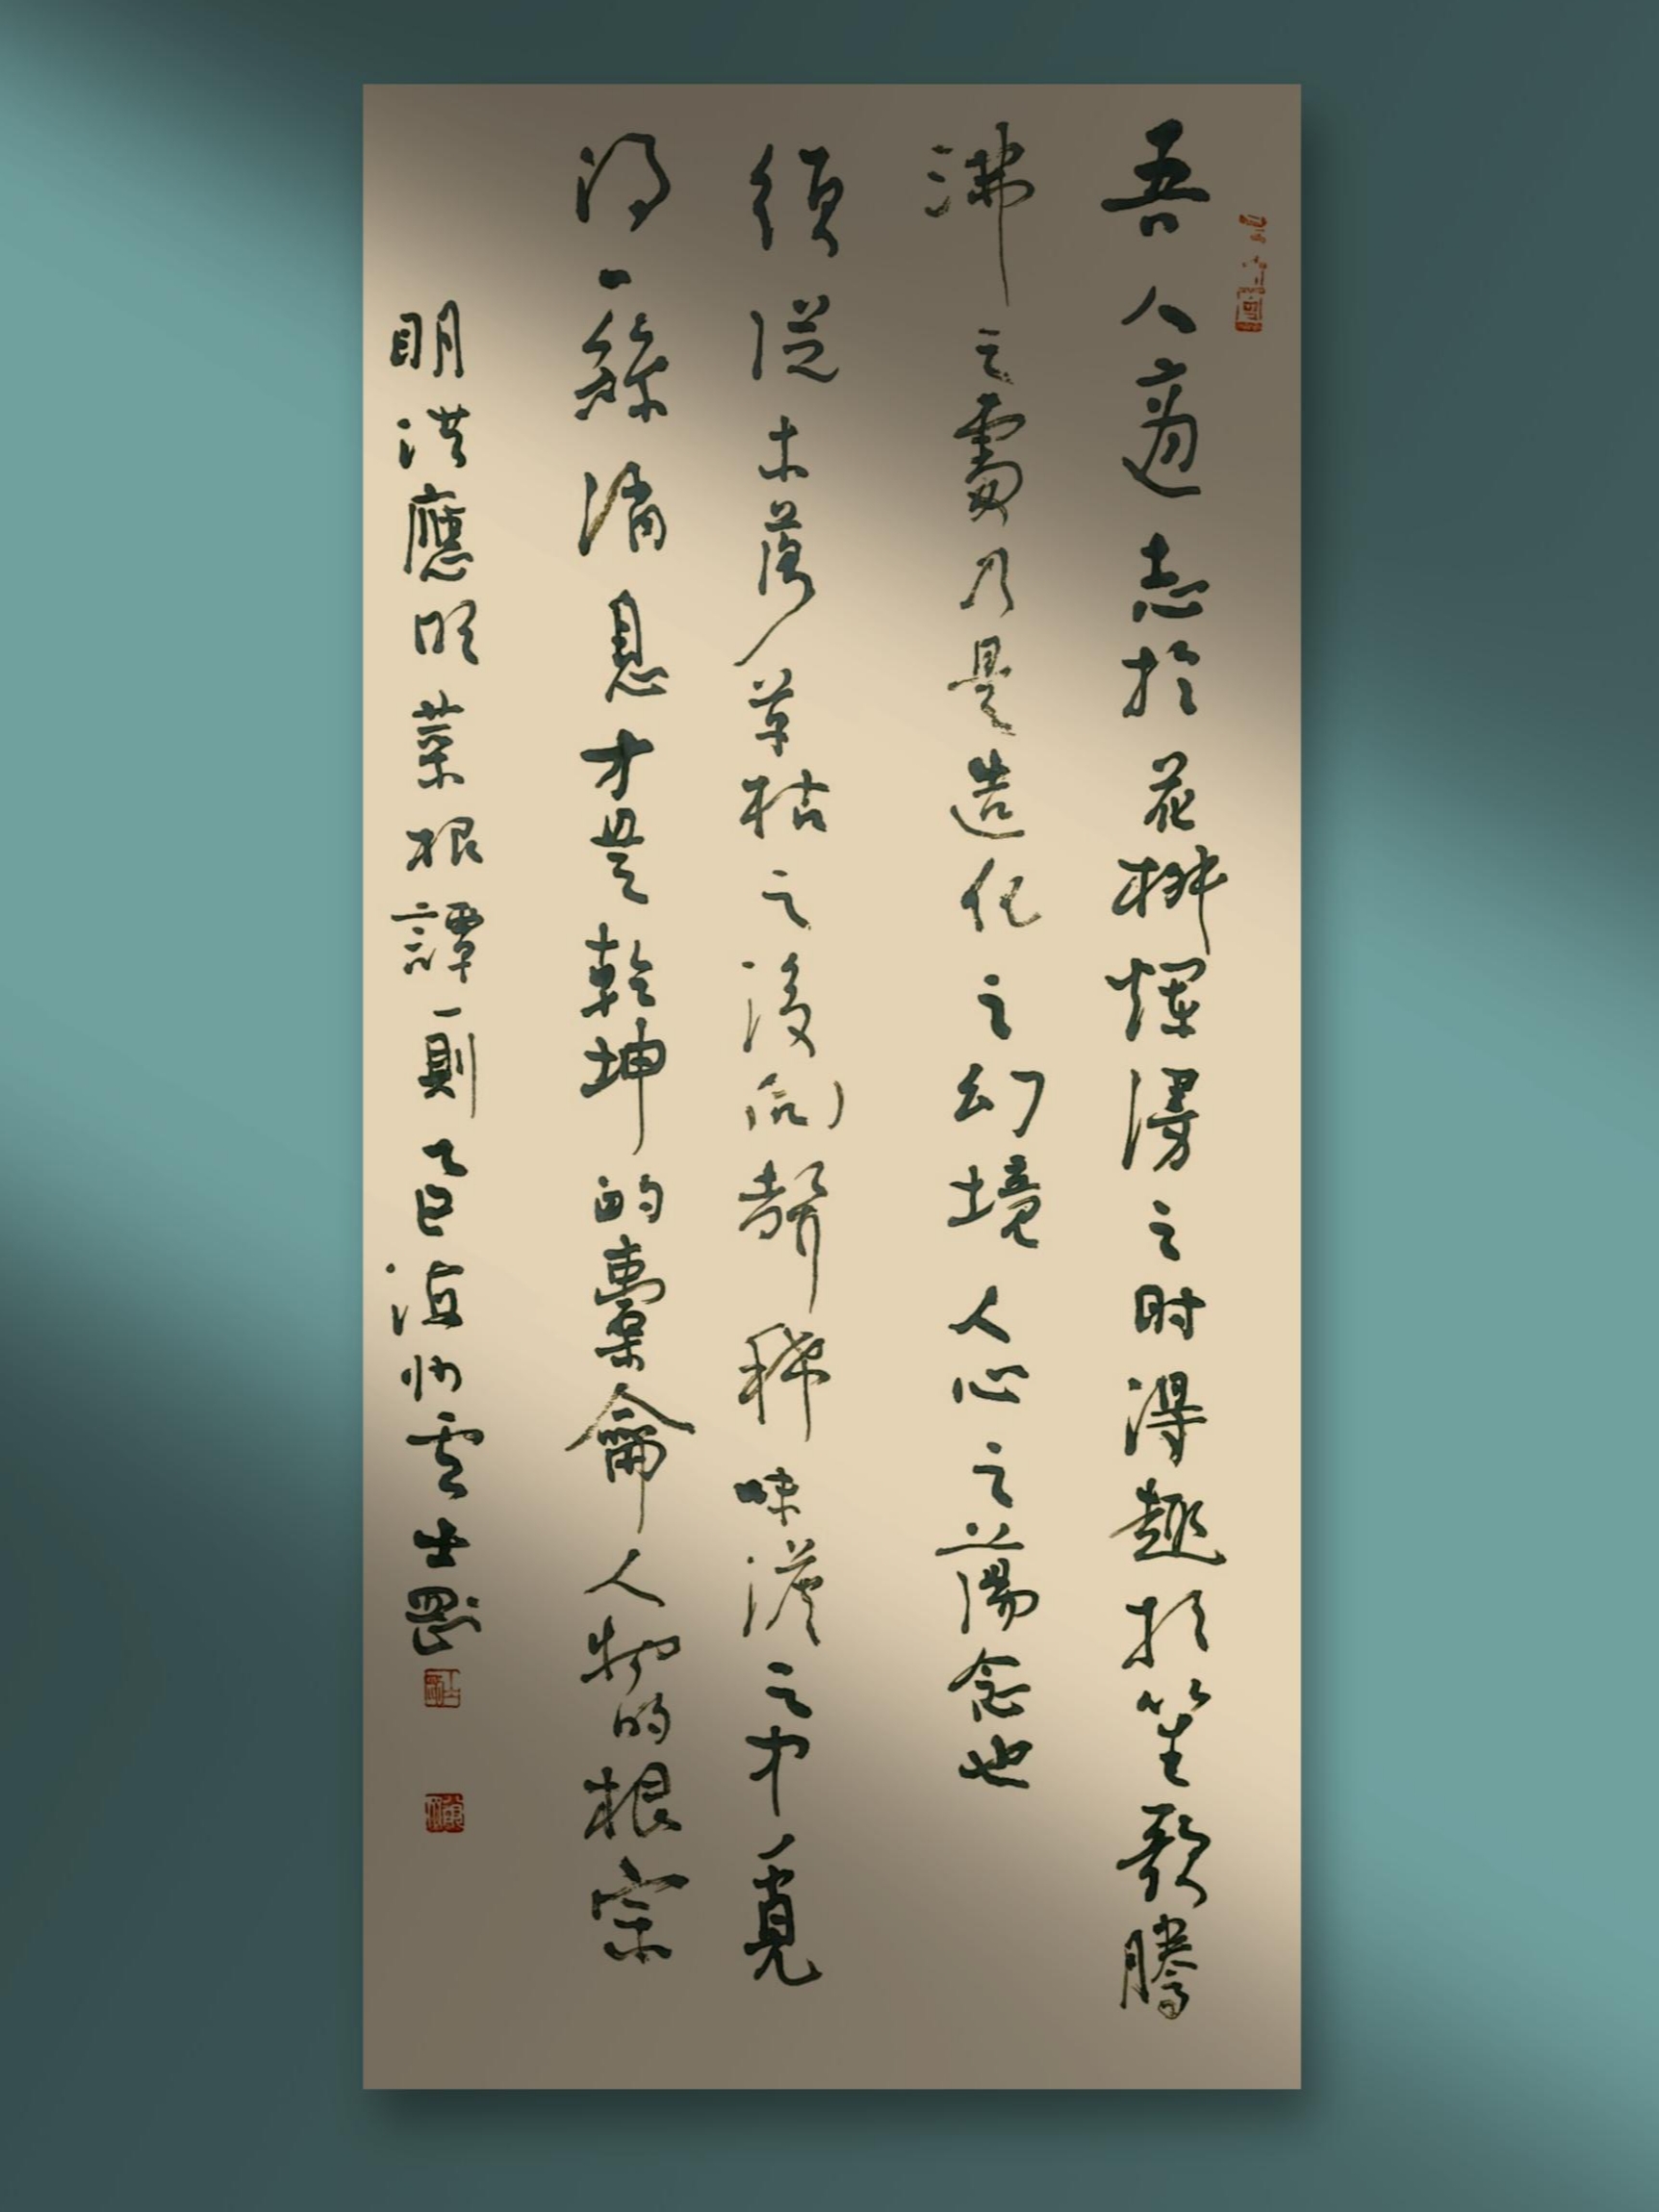 吾人適志於花柳爛漫之时得趣於笙歌騰
沸之處乃是造化之幻境人心之蕩念也
須從木落草枯之後向聲稀味淡之中覓
得一絲消息才是乾坤的橐龠人物的根宗
明洪應明菜根譚一則乙巳海州雲士剛